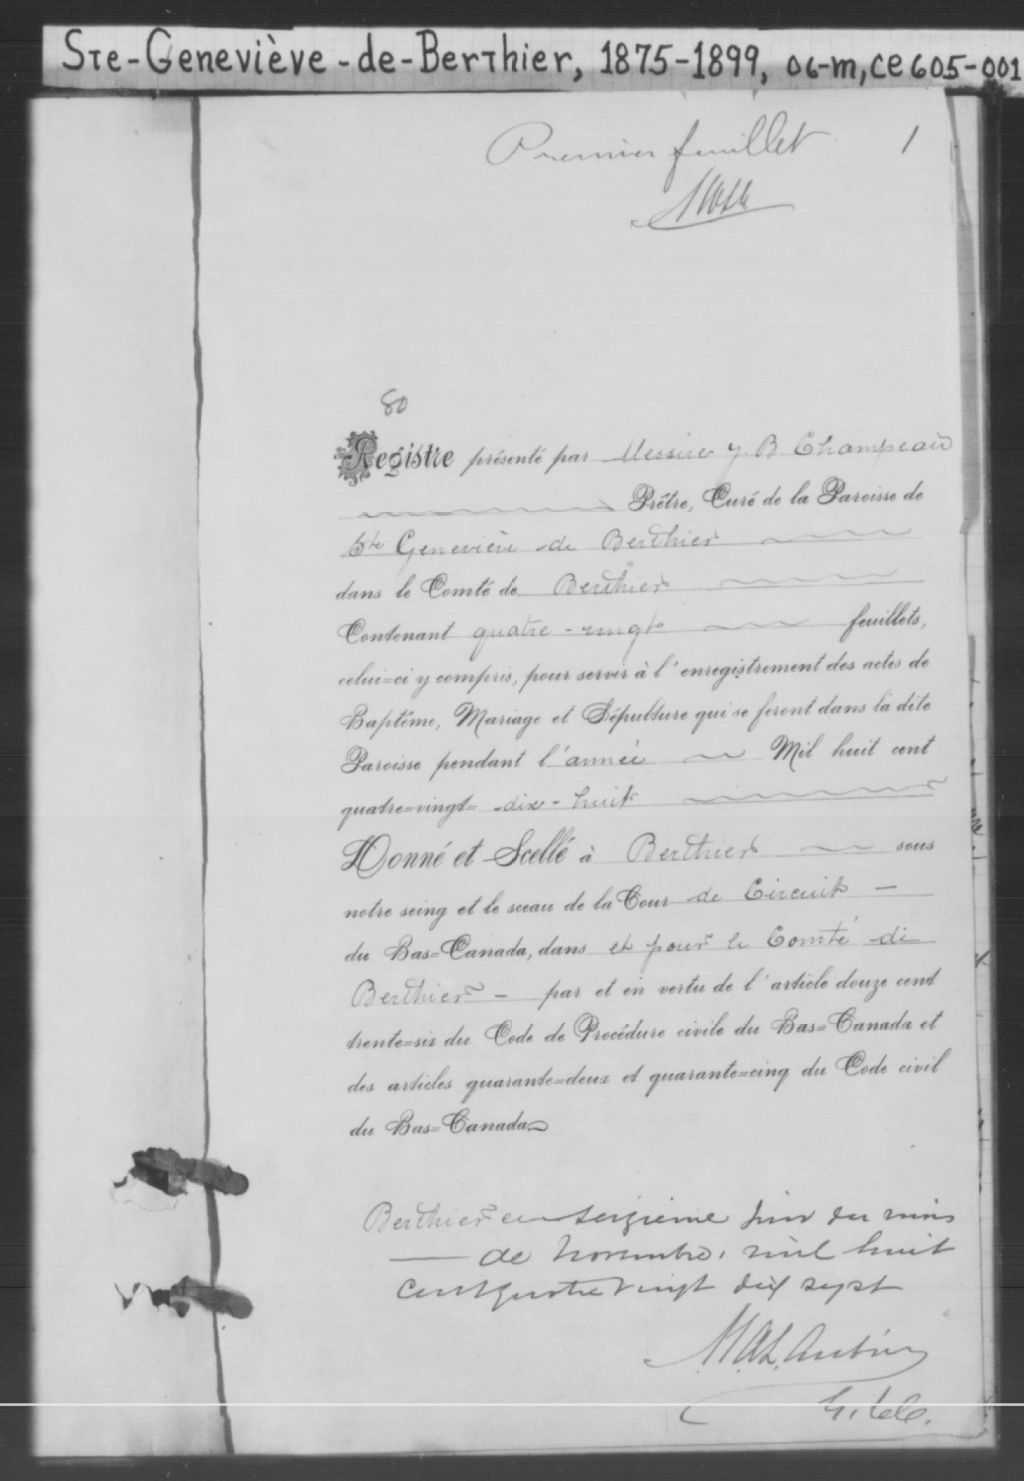 Ste-Geneviève-de-Berthier, 1875-1899, 06-m, ce 605-001
Premier feuillet 1
80
Registre présenté par Messire J. B Champeau
Prêtre, Curé de la Paroisse de
Ste Geneviève de Berthier
dans le Comté de Berthier
Contenant quatre-vingts feuillets,
celui=ci y compris, pour servir à l'enregistrement des actes de
Baptême, Mariage et Sépulture qui se feront dans la dite
Paroisse pendant l'année Mil huit cent
quatre=vingt=dix-huit
Donné et Scellé à Berthier sous
notre seing et le sceau de la Cour de Circuit
du Bas=Canada, dans et pour le Comté de
Berthier par et en vertu de l'article douze cent
trente=six du Code de Procédure civile du Bas=Canada et
des articles quarante=deux et quarante=cinq du Code civil
du Bas=Canada
Berthier ce seizieme jour du mois
de novembre, mil huit
cent quatre vingt dix sept